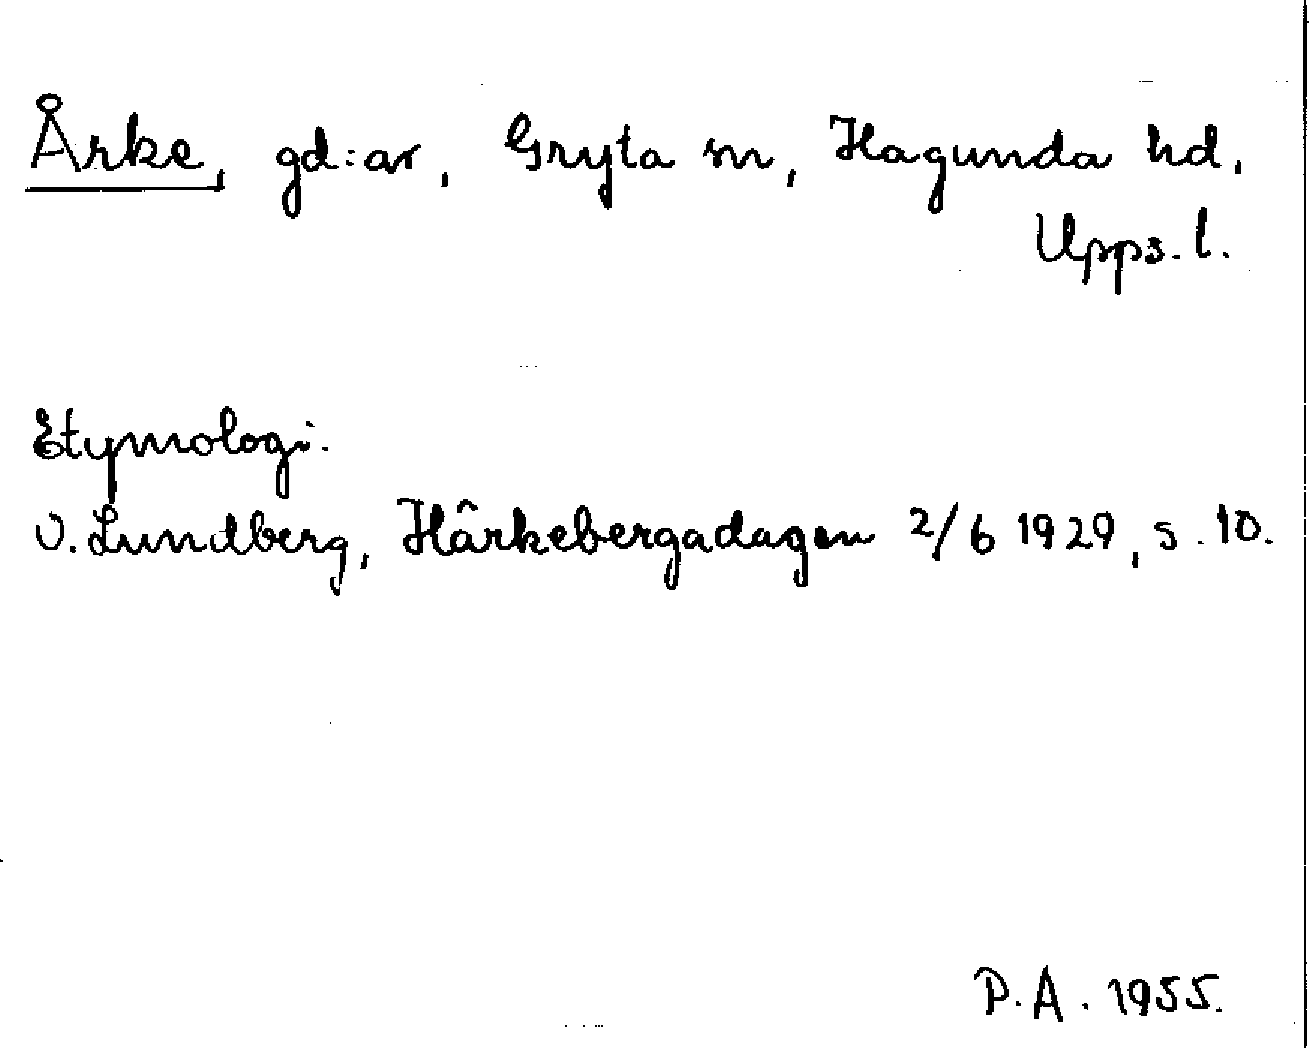 Årke, gd:ar, Gryta sn, Hagunda hd,
Upps. l.
Etymologi.
O. Lundberg, Härkebergadagen 2/6 1929, s. 10.
P.A. 1955.